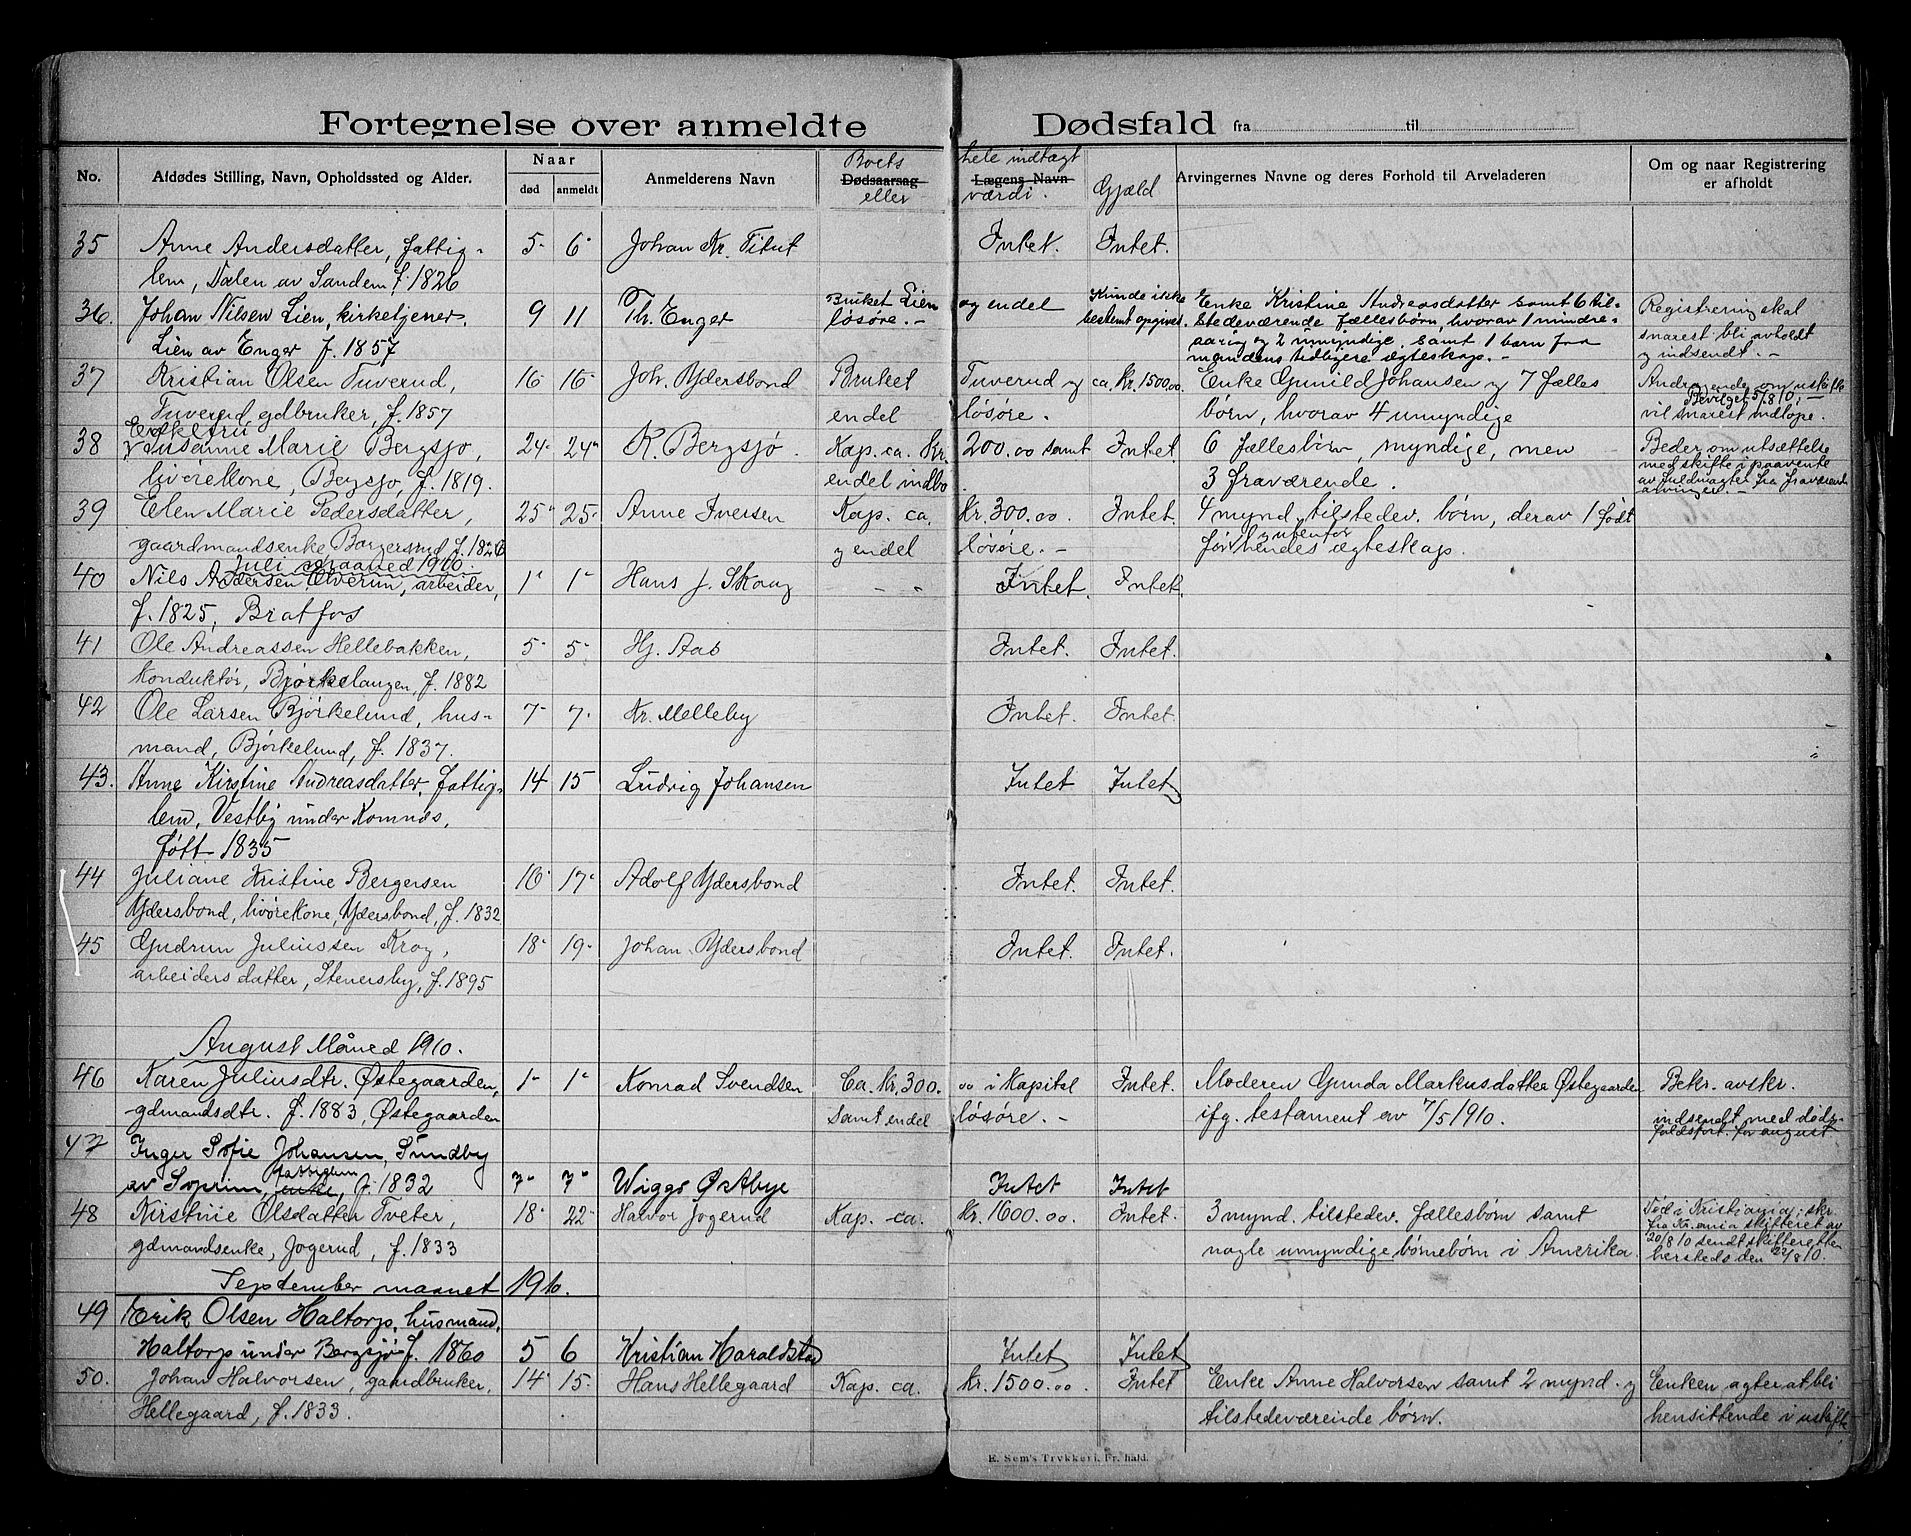 Fortegnelse over anmeldte Dødsfald fra til
No. Afdødes Stilling, Navn, Opholdssted og Alder. Naar død anmeldt Anmelderens Navn Boets hele indtægt
Dødsaarsag Lægens Navn Gjæld Arvingernes Navne og deres Forhold til Arveladeren Om og naar Registrering er afholdt
eller værdi.
35 Anne Andersdatter, fattig- 5- 6- Johan Kr. Titut Intet. Intet.
lem, Dalen av Sandem, f. 1826
36. Johan Nilsen Lien, kirketjener, 9 11 Th. Enger Bruket Lien og endel Kunde ikke Enke Kristine Andreasdatter samt 6 til- Registrering skal
Lien av Enger f. 1857 løsøre. - bestemt opgives. stedeværende fællesbørn, hvorav 1 mindre- snarest bli avholdt
aarig og 2 umyndige, samt 1 barn fra og indsendt. -
mandens tidligere ægteskap. -
37 Kristian Olsen Tuverud, 16- 16- Joh. Ydersbond Bruket Tuverud og ca. Kr. 1500.00 Enke Gunild Johansen og 7 fælles Andragende om uskifte
Tuverud gdbruker, f. 1857 endel løsøre. børn, hvorav 4 umyndige Bevilget 5/8 10. -
vil snarest indløpe.
Enkefru
38 Susanne Marie Bergsjø, 24- 24- K. Bergsjø. Kap. ca. Kr. 200.00 samt Intet. 6 fællesbørn, myndige, men Beder om utsættelse
livørekone, Bergsjø, f. 1819. endel indbo. 3 fraværende. med skifte i paavente
av fuldmagter fra fraværende
arvinger. -
39 Elen Marie Pedersdatter, 25- 25- Anne Iversen Kap. ca. Kr. 300.00 Intet. 4 mynd. tilstedev. børn, derav 1 født
gaardmandsenke, Borgersrud f. 1826 og endel løsøre. - før og utenfor hendes ægteskap.
Juli maaned 1910.
40 Nils Andersen Elverum, arbeider, 1- 1- Hans J. Skaug - - Intet. Intet.
f. 1825, Bratfos
41 Ole Andreassen Hellebakken, 5- 5- Hj. Aas Intet. Intet.
konduktør, Bjørkelangen, f. 1882
42 Ole Larsen Bjørkelund, hus- 7- 7- Kr. Melleby Intet. Intet.
mand, Bjørkelund, f. 1837.
43. Anne Kirstine Andreasdatter, fattig- 14 15 Ludvig Johansen Intet Intet
lem, Vestby under Komnæs,
født 1835
44 Juliane Kristine Bergersen 16- 17- Adolf Ydersbond Intet. Intet.
Ydersbond, livørekone, Ydersbond, f. 1832
45 Gudrun Juliussen Krog, 18- 19- Johan Ydersbond Intet. Intet.
arbeiders datter, Stenersby, f. 1895
August Måned 1910.
46 Karen Juliusdtr. Østegaarden, 1- 1- Konrad Svendsen Ca. Kr. 300.00 i Kapitel Intet. Moderen Gunda Markusdatter Østegaarden Bekr. avskr.
gdmandsdtr. f. 1883, Østegaarden samt endel løsøre. - ifg. testament av 7/5 1910. indsendt med døds-
faldsfort. for august
47 Inger Sofie Johansen, Sundby
av Soprim, enke, fattiglem f. 1832 7- 7- Wiggo Østbye Intet Intet
48 Kirstine Olsdatter Tveter, 18- 22- Halvor Jogerud Kap. ca. Kr. 1600.00 Intet. 3 mynd. tilstedev. fællesbørn samt Død i Kristiania; skr.
gdmandsenke, Jogerud, f. 1833 nogle umyndige børnebørn i Amerika. fra Kr.ania skifteret av
20/8 10 sendt skifteretten
hersteds den 22/8 10.
September maanet 1910.
49 Erik Olsen Haltorp, husmand,
Haltorp under Bergsjø f. 1860 5 6 Kristian Haraldstad Intet Intet
50. Johan Halvorsen, gaardbruker, 14- 15. Hans Hellegaard Kap. ca. Kr. 1500.00 Intet Enke Anne Halvorsen samt 2 mynd. og Enken agter at bli
Hellegaard, f. 1833. tilstedeværende børn. hensittende i uskifte
E. Sem's Trykkeri, Fr.hald.